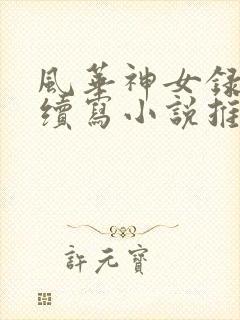 風華神女録
續寫小說推
許元寶